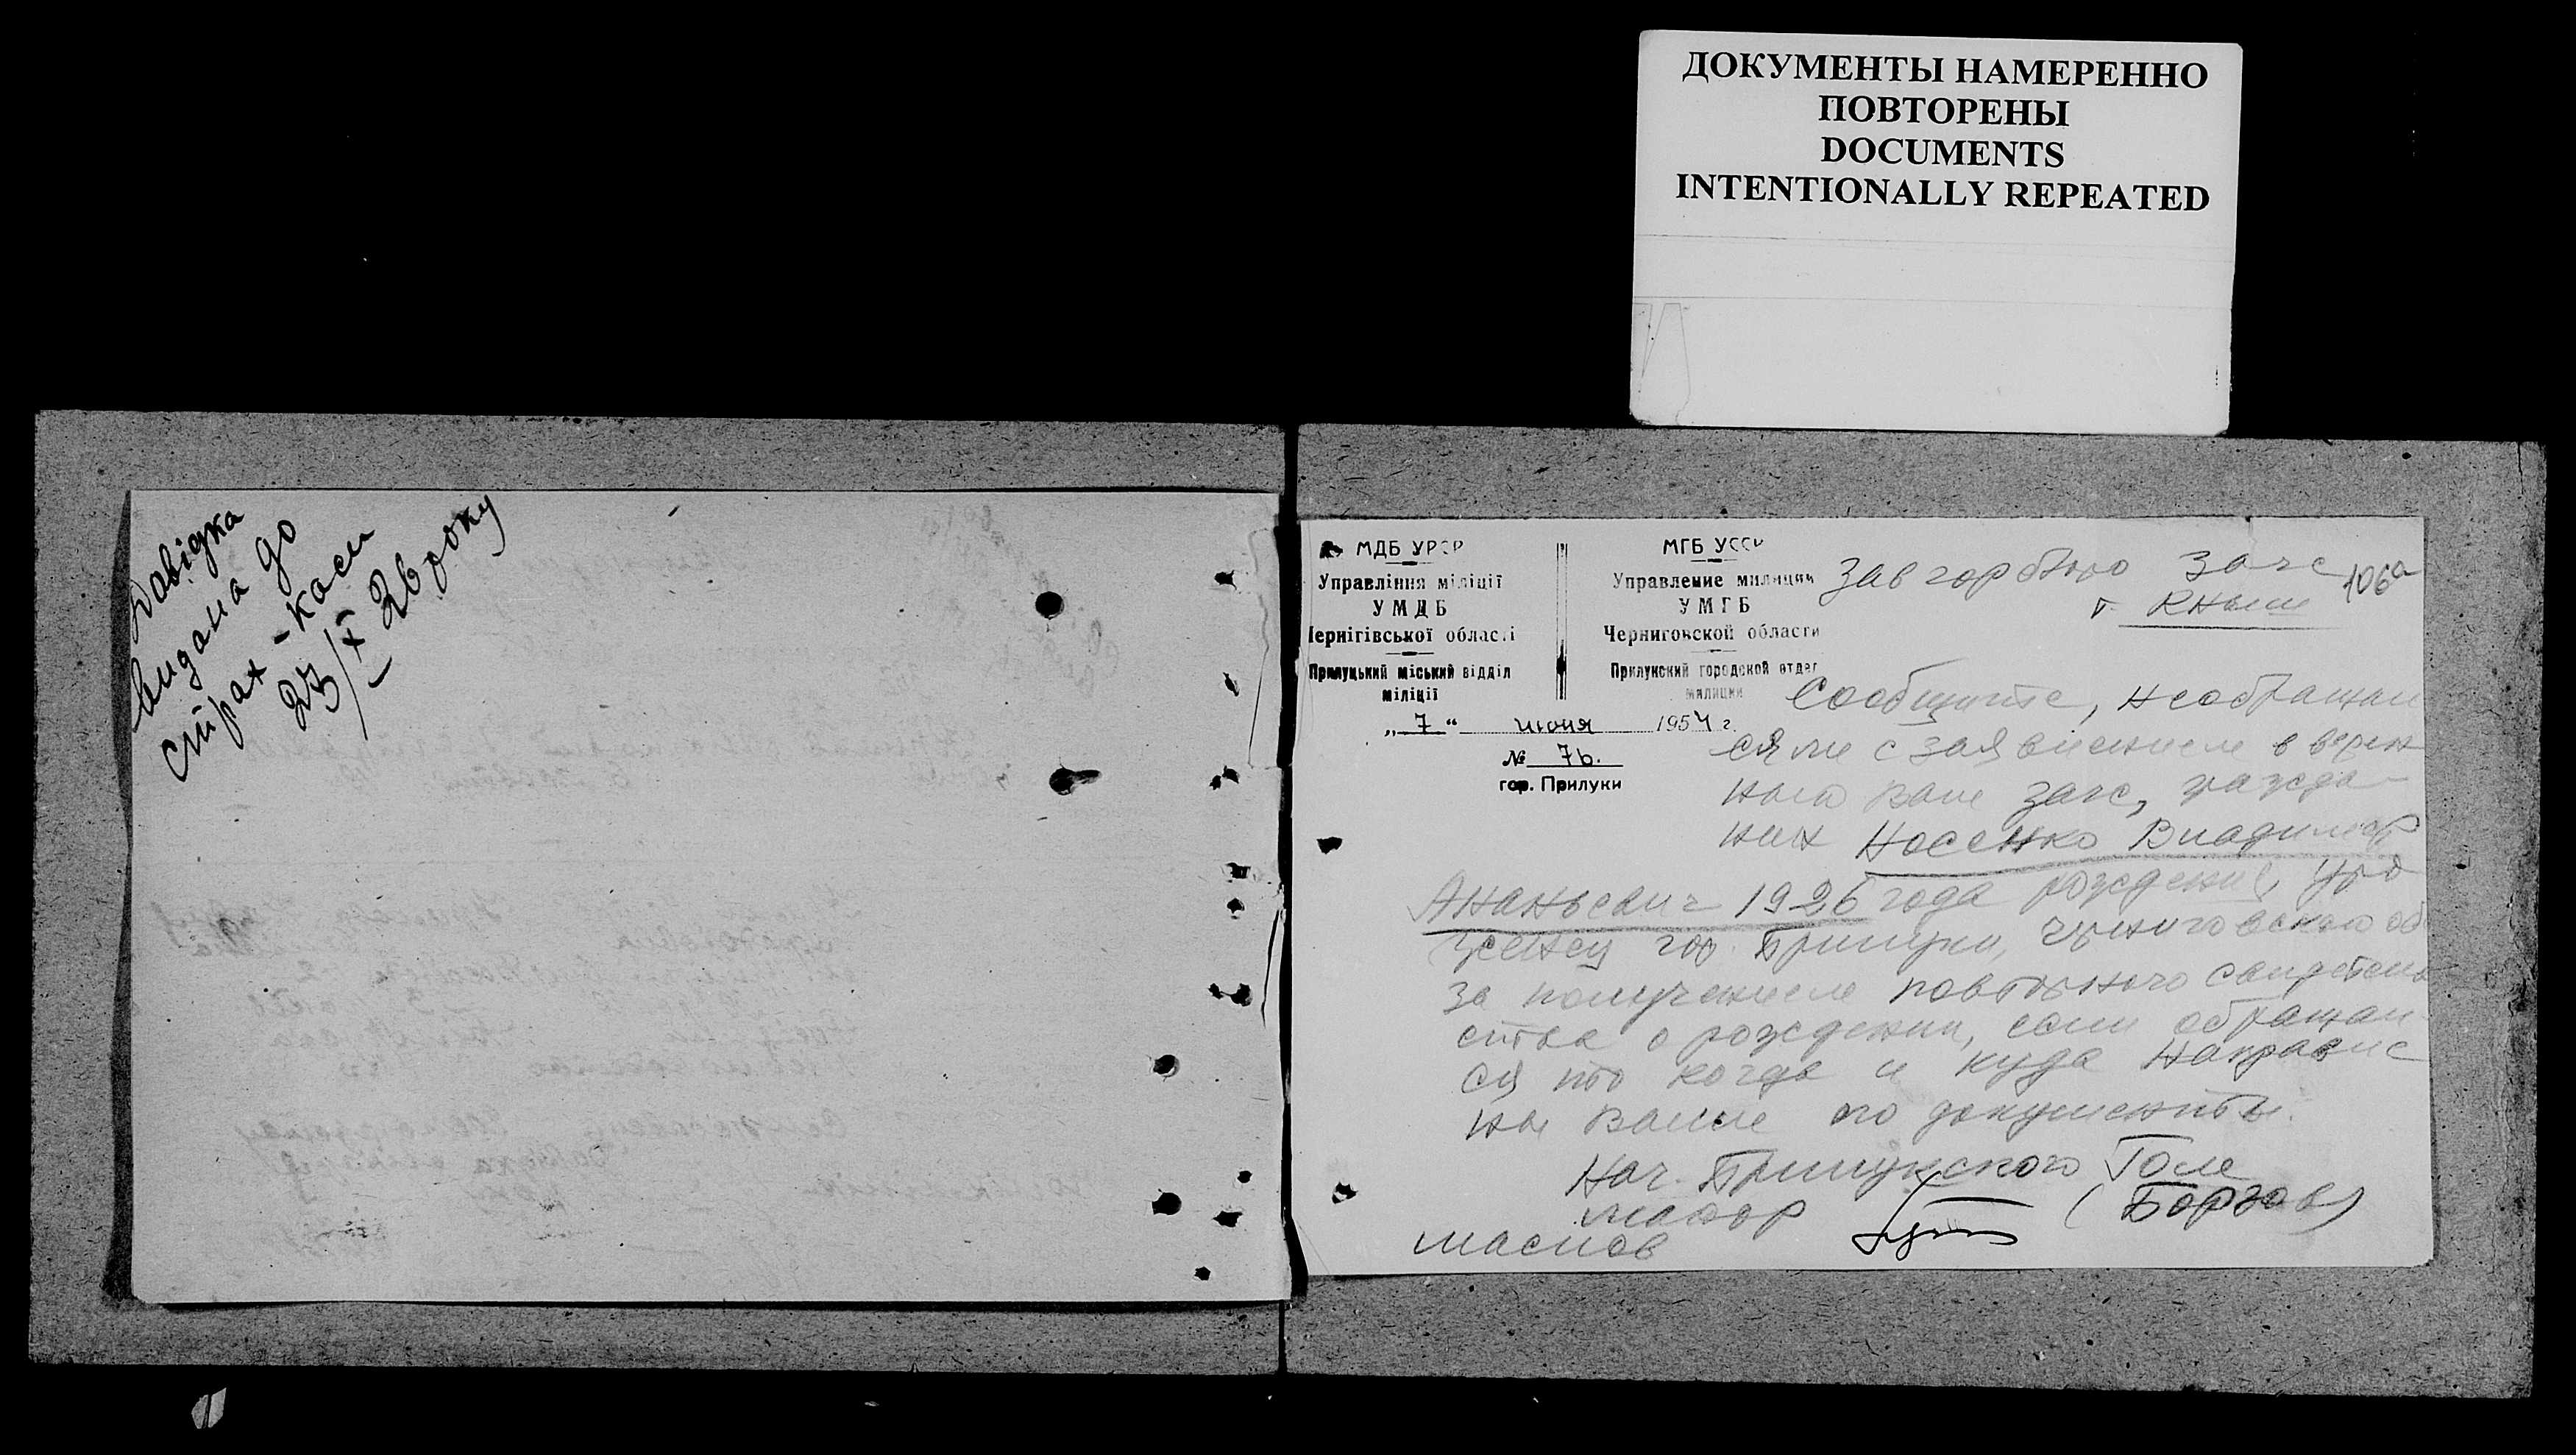 ДОКУМЕНТЫ НАМЕРЕННО
ПОВТОРЕНЫ
DOCUMENTS
INTENTIONALLY REPEATED
Довідка
видана до
страх-каси
23/IX 26 року
МДБ УРСР
Управління міліції
УМДБ
Чернігівської області
Прилуцький міський відділ
міліції
МГБ УССР
Управление милиции
УМГБ
Черниговской области
Прилукский городской отдел
милиции
„7“ июня 1954 г.
№ 76.
гор. Прилуки
Зав гор бюро Загс
г.
106а
Сообщите, необращал
ся ли с заявлением в верен
ного Вам загс, гражда-
нин Носенко Владимир
Ананьевич 1926 года рождения, уро
женец гор. Прилуки, Черниговской об
за получением повторного свидетель
ства о рождении, если обращал
ся то когда и куда направле
ны Вами его документы.
Нач. Прилукского Гом
майор (Борзов)
маслов